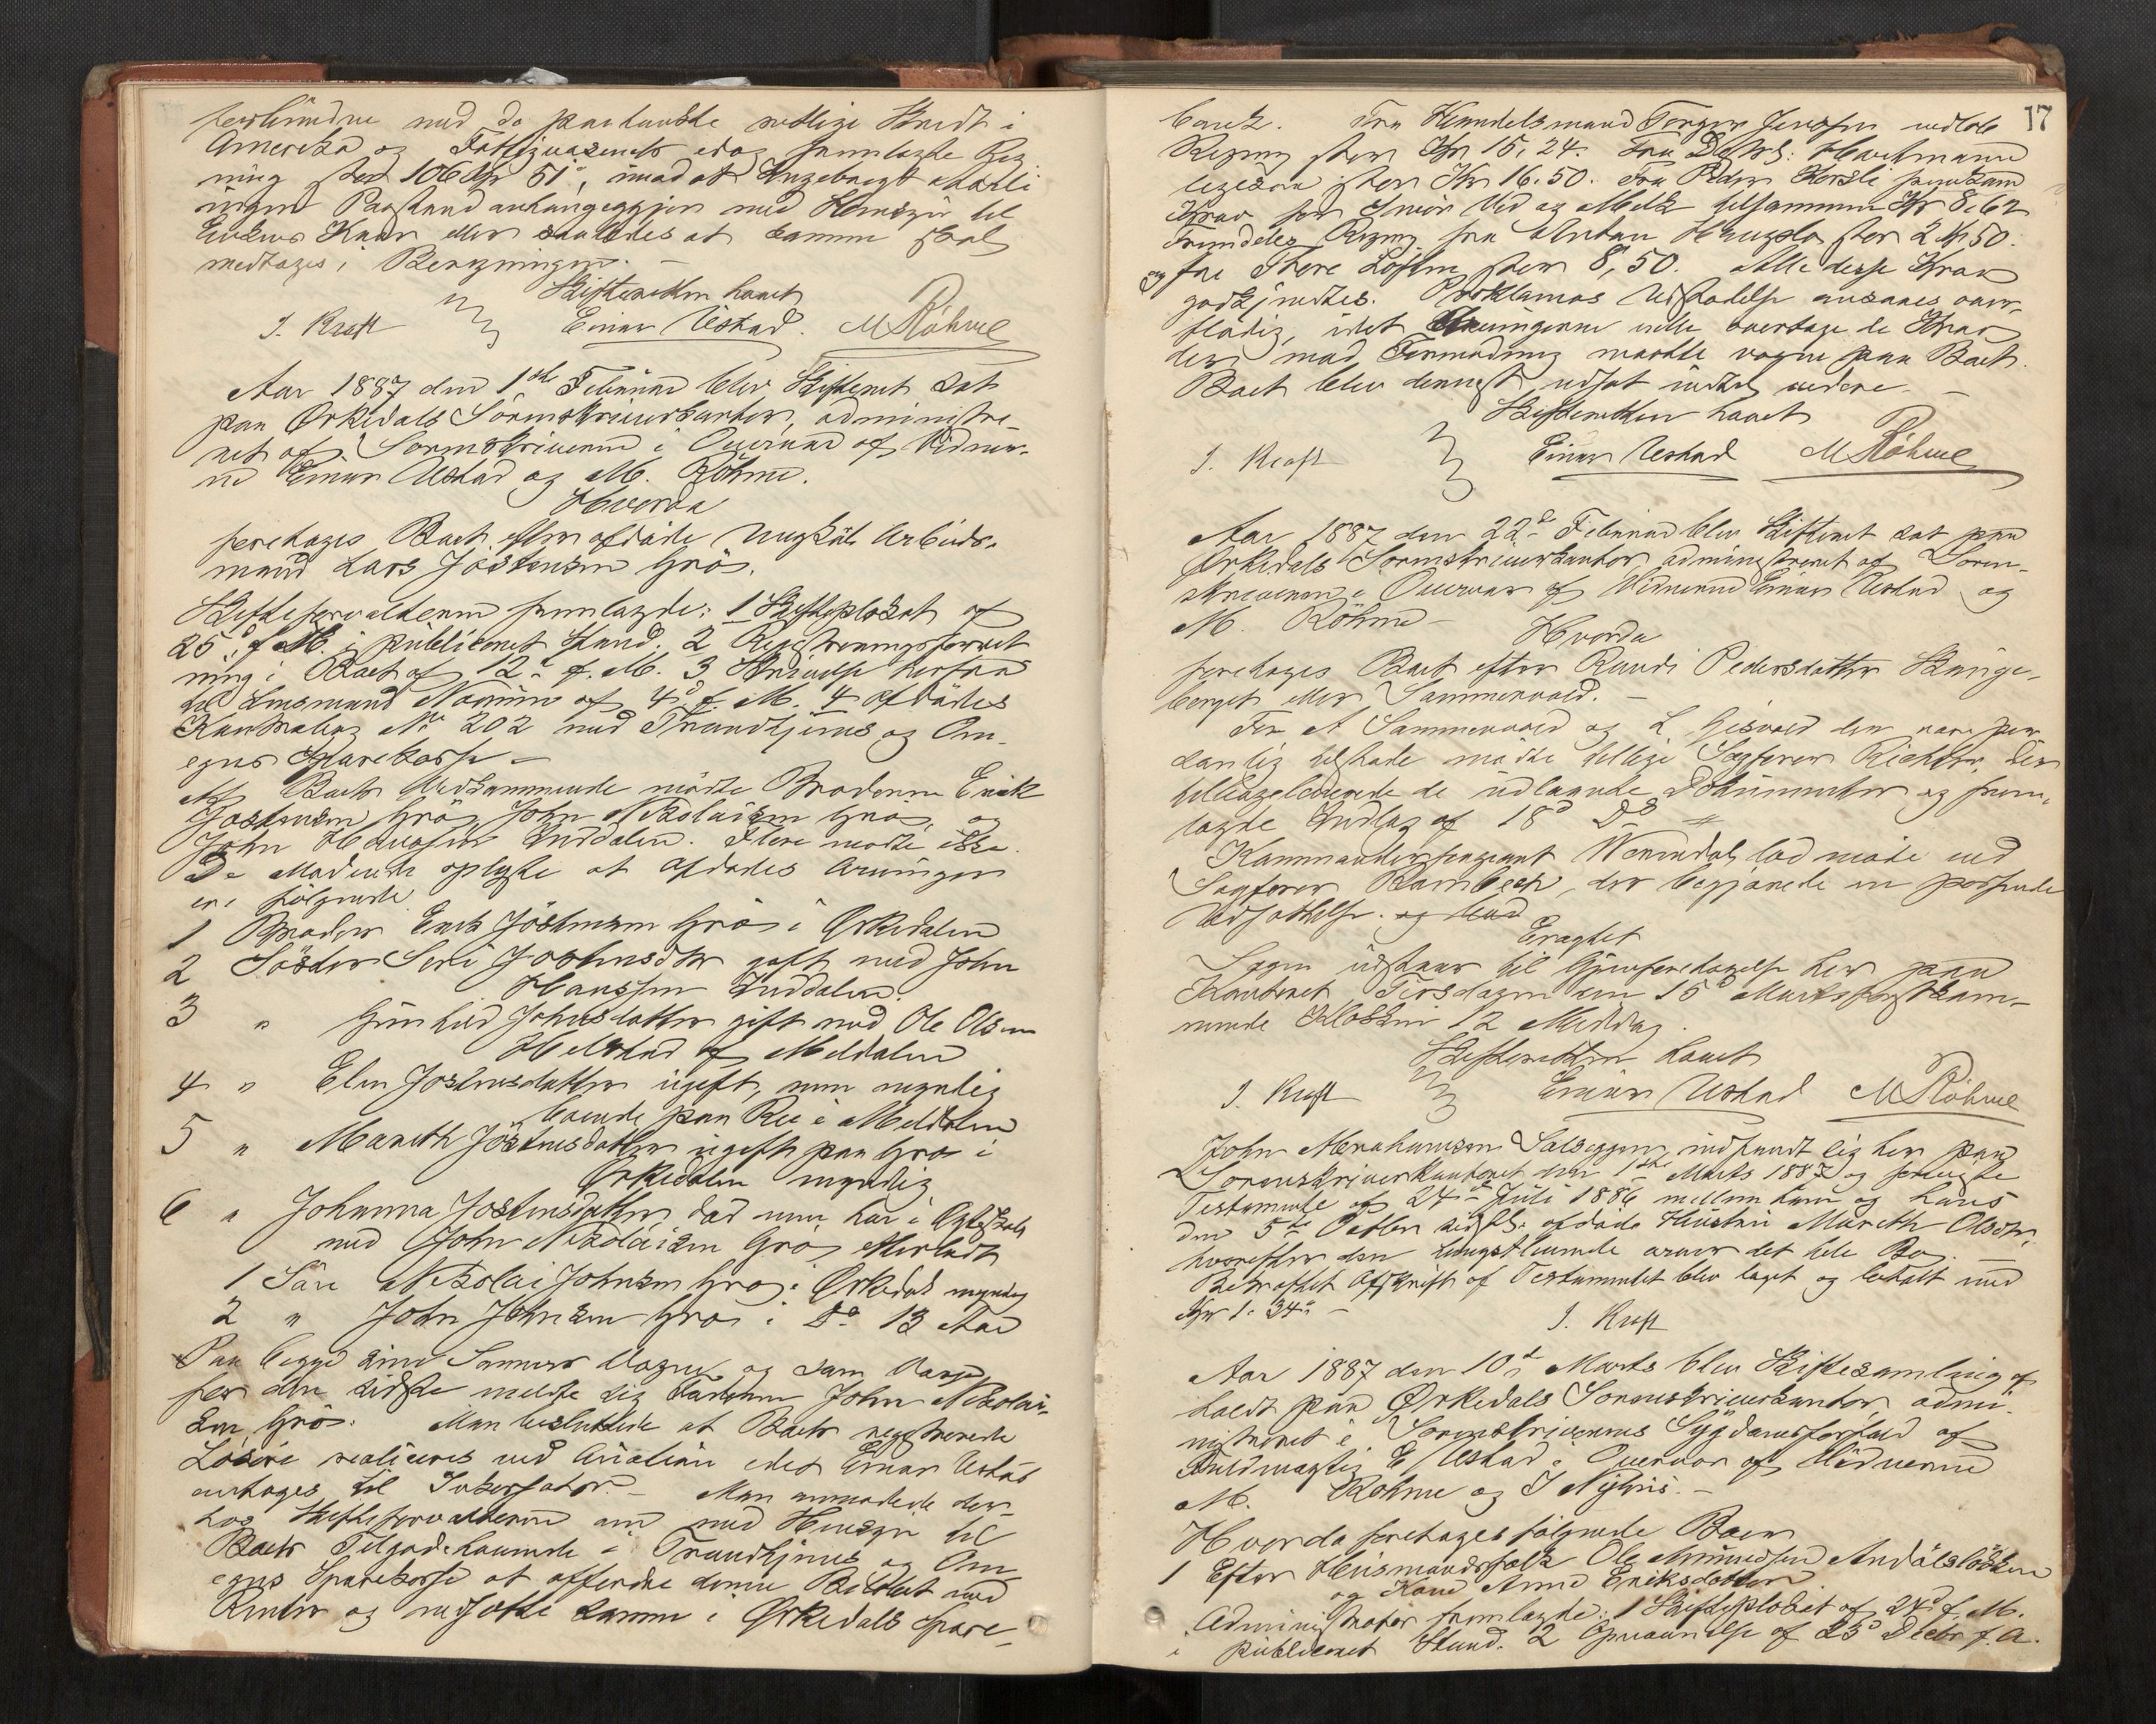 med da paahævede rettige Skridt i
Amerika og Fattigvæsenets idag fremlagte Reg-
ning stor 106 Kr 51 ø, imod at
Paastand med Hensyn til
Enkens Krav eller saaledes at samme skal
medtages i Beregningen. —
Skifteretten hævet
J. Kraft Einar Ustad. M Röhme
Aar 1887 den 1ste Februar blev Skifteret sat
paa Ørkedals Sorenskriverkontor, administre-
ret af Sorenskriveren i Overvær af Vidner-
ne Einar Ustad og M. Röhme.
Hvorda
foretoges Boet efter afdøde Ungkarl Arbeids-
mand Lars Jostensen Grø.
Skifteforvalteren fremlagde: 1 Skifteplakat af
25 d. f. M. i publiceret Stand. 2 Registreringsforret
ning i Boet af 12 f. M. 3 Skrivelse herfra
til Lensmand af 4 d. f. M. 4 Afdødes
Kontrabog No 202 med Trondhjems og Om-
egns Sparekasse —
Af Boets Vedkommende mødte Broderen Erik
Jostensen Grø, John Nikolaisen Grø, og
John Hansen Inddalen. Flere mødte ikke.
De Mødende oplyste at Afdødes Arvinger
er følgende
1 Broder Erik Jostensen Grø i Ørkedalen
2 Søster Siri Jostensdtr gift med John
Hanssen Inddalen.
3 " Gunhild Johnsdatter gift med Ole Olsen
Helstad af Meldalen
4 " Elen Jostensdatter ugift, men myndig
boende paa Ree i Meldalen
5 " Mareth Jostensdatter ugift paa Grø i
Ørkedalen myndig
6 " Johanna Jostensdatter død men har i Ægteskab
med John Nikolaisen Grø efterladt
1 Søn Nikolai Johnsen Grø i Ørkedal myndig
2 " John Johnsen Grø i Do 13 Aar
Paa begge sine Sønners Vegne og som Værge
for den sidste meldte sig Faderen John Nikolai-
sen Grø. Man besluttede at Boets registrerede
Løsøre realiseres ved Auktion idet Einar Ustad
antoges til Inkassator. — Man anmodede der-
hos Skifteforvalteren om med Hensyn til
Boets Tilgodehavende i Trondhjems og Om
egns Sparekasse at affordre denne Beløbet med
Renter og indsætte samme i Ørkedals Spare-
17
bank. Fra Handelsmand Torger Jenssen indkom
Regning stor Kr 15,24. Fra Distrl: Hartmann
ligesaa stor Kr 16.50. Fra Peder Horsli fremkom
Krav for Smør Ved og Melk tilsammen Kr 8,62
Fremdeles Regning fra Anton stor 2 Kr 50.
og fra Thore Loften stor 8,50. Alle disse Krav
godkjendtes. Proklamas Udstedelse ansaaes over-
flødig, idet Arvingerne ville overtage de Krav
der mod Formodning maatte være paa Boet.
Boet blev dernæst udsat indtil videre. —
Skifteretten hævet
J. Kraft Einar Ustad M Röhme
Aar 1887 den 22de Februar blev Skifteret sat paa
Ørkedals Sorenskriverkontor, administreret af Soren-
skriveren i Overvær af Vidnerne Einar Ustad og
M. Röhme —
Hvorda
foretoges Boet efter Randi Pedersdatter
berget eller Sammervold. —
For A Sammervold og L. Gisvold der var per
sonlig tilstede mødte tillige Sagfører Richter, der
tilbageleverede de udlaante Dokumenter og frem-
lagde Indlæg af 18 ds
Kommandersergeant lod møde ved
Sagfører Rambech, der begjærede en passende
Udsættelse. og hævet
Eragtet
Sagen udstaar til Gjenforetagelse her paa
Kontoret Tirsdagen den 15 Marts førstkom-
mende Klokken 12 Middag.
Skifteretten hævet
J. Kraft Einar Ustad M Röhme
John Abrahamsen Salseggen indfandt sig her paa
Sorenskriverkontoret den 1ste Marts 1887 og foreviste
Testamente af 24de Juli 1886 mellem ham og hans
den 5te Octbr sidstl. afdøde Hustru Mareth Olsdtr,
hvorefter den Længstlevende arver det hele Bo. —
Bekræftet Afskrift af Testamentet blev taget og betalt med
Kr 1. 34 ø —
J. Kraft
Aar 1887 den 10de Marts blev Skiftesamling af
holdt paa Ørkedals Sorenskriverkontor, admi-
nistreret i Sorenskriverens Sygdomsforfald af
Fuldmægtig E Ustad i Overvær af Vidnerne
M. Röhme og J Nyhus. —
Hvorda foretoges følgende Boer
1 Efter Husmandsfolk Ole Amundsen
og Kone Anne Eriksdatter
Administrator fremlagde: 1 Skifteplakat af 24 d. f. M.
i publiceret Stand. 2 Opnævnelse af 23 Decbr f. A.